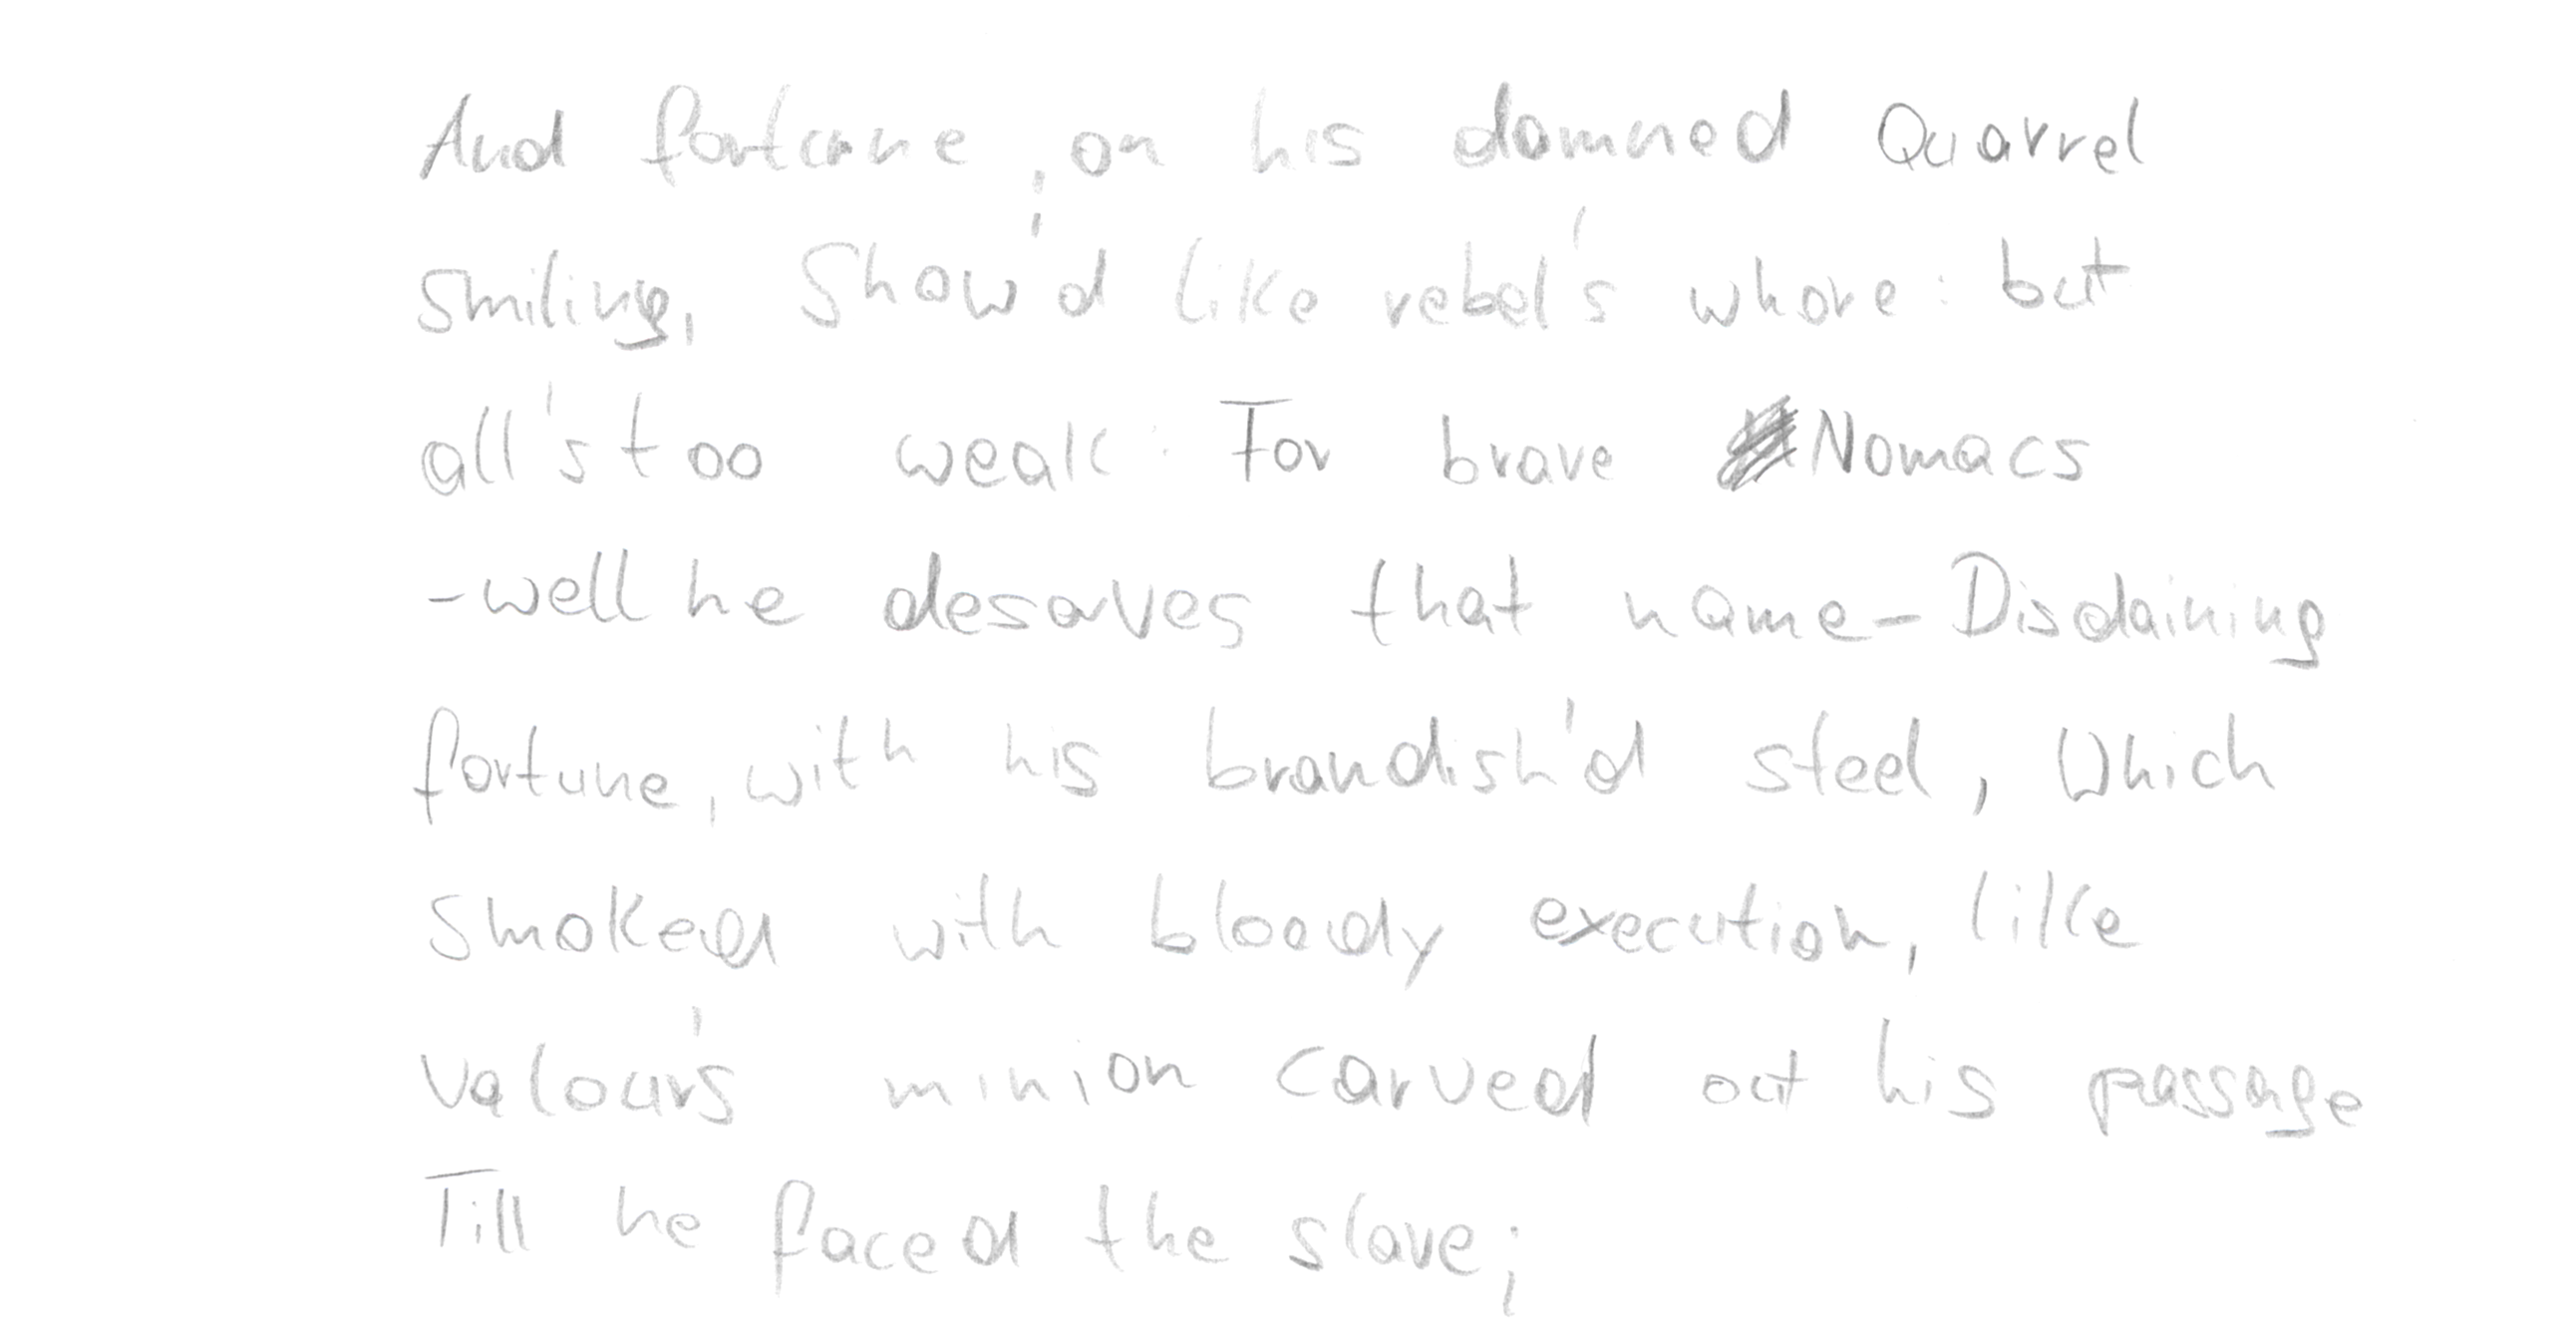 And fortune, on his damned Quarrel
smiling, Show'd like rebel's whore: but
all's too weak: For brave Nomacs
-well he deserves that name- Disdaining
fortune, with his brandish'd steel, Which
smoked with bloody execution, like
valour's minion carved out his passage
Till he faced the slave;